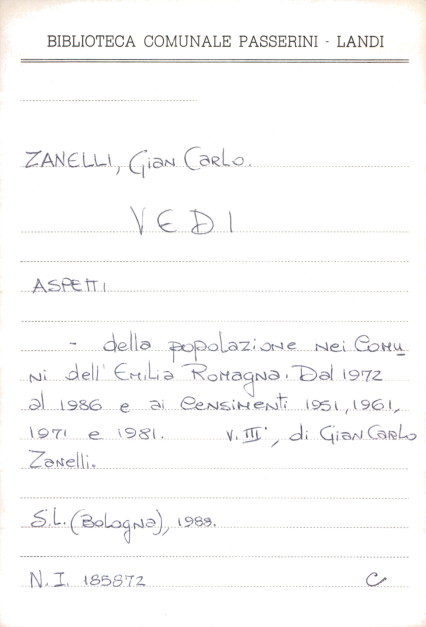 BIBLIOTECA COMUNALE PASSERINI - LANDI
ZANELLI, Gian Carlo.
VEDI
ASPETTI
- della popolazione nei Comu
ni dell'Emilia Romagna. Dal 1972
al 1986 e ai censimenti 1951, 1961,
1971 e 1981. V. III°, di Gian Carlo
Zanelli.
S.L. (Bologna), 1988.
N.I. 185872 C